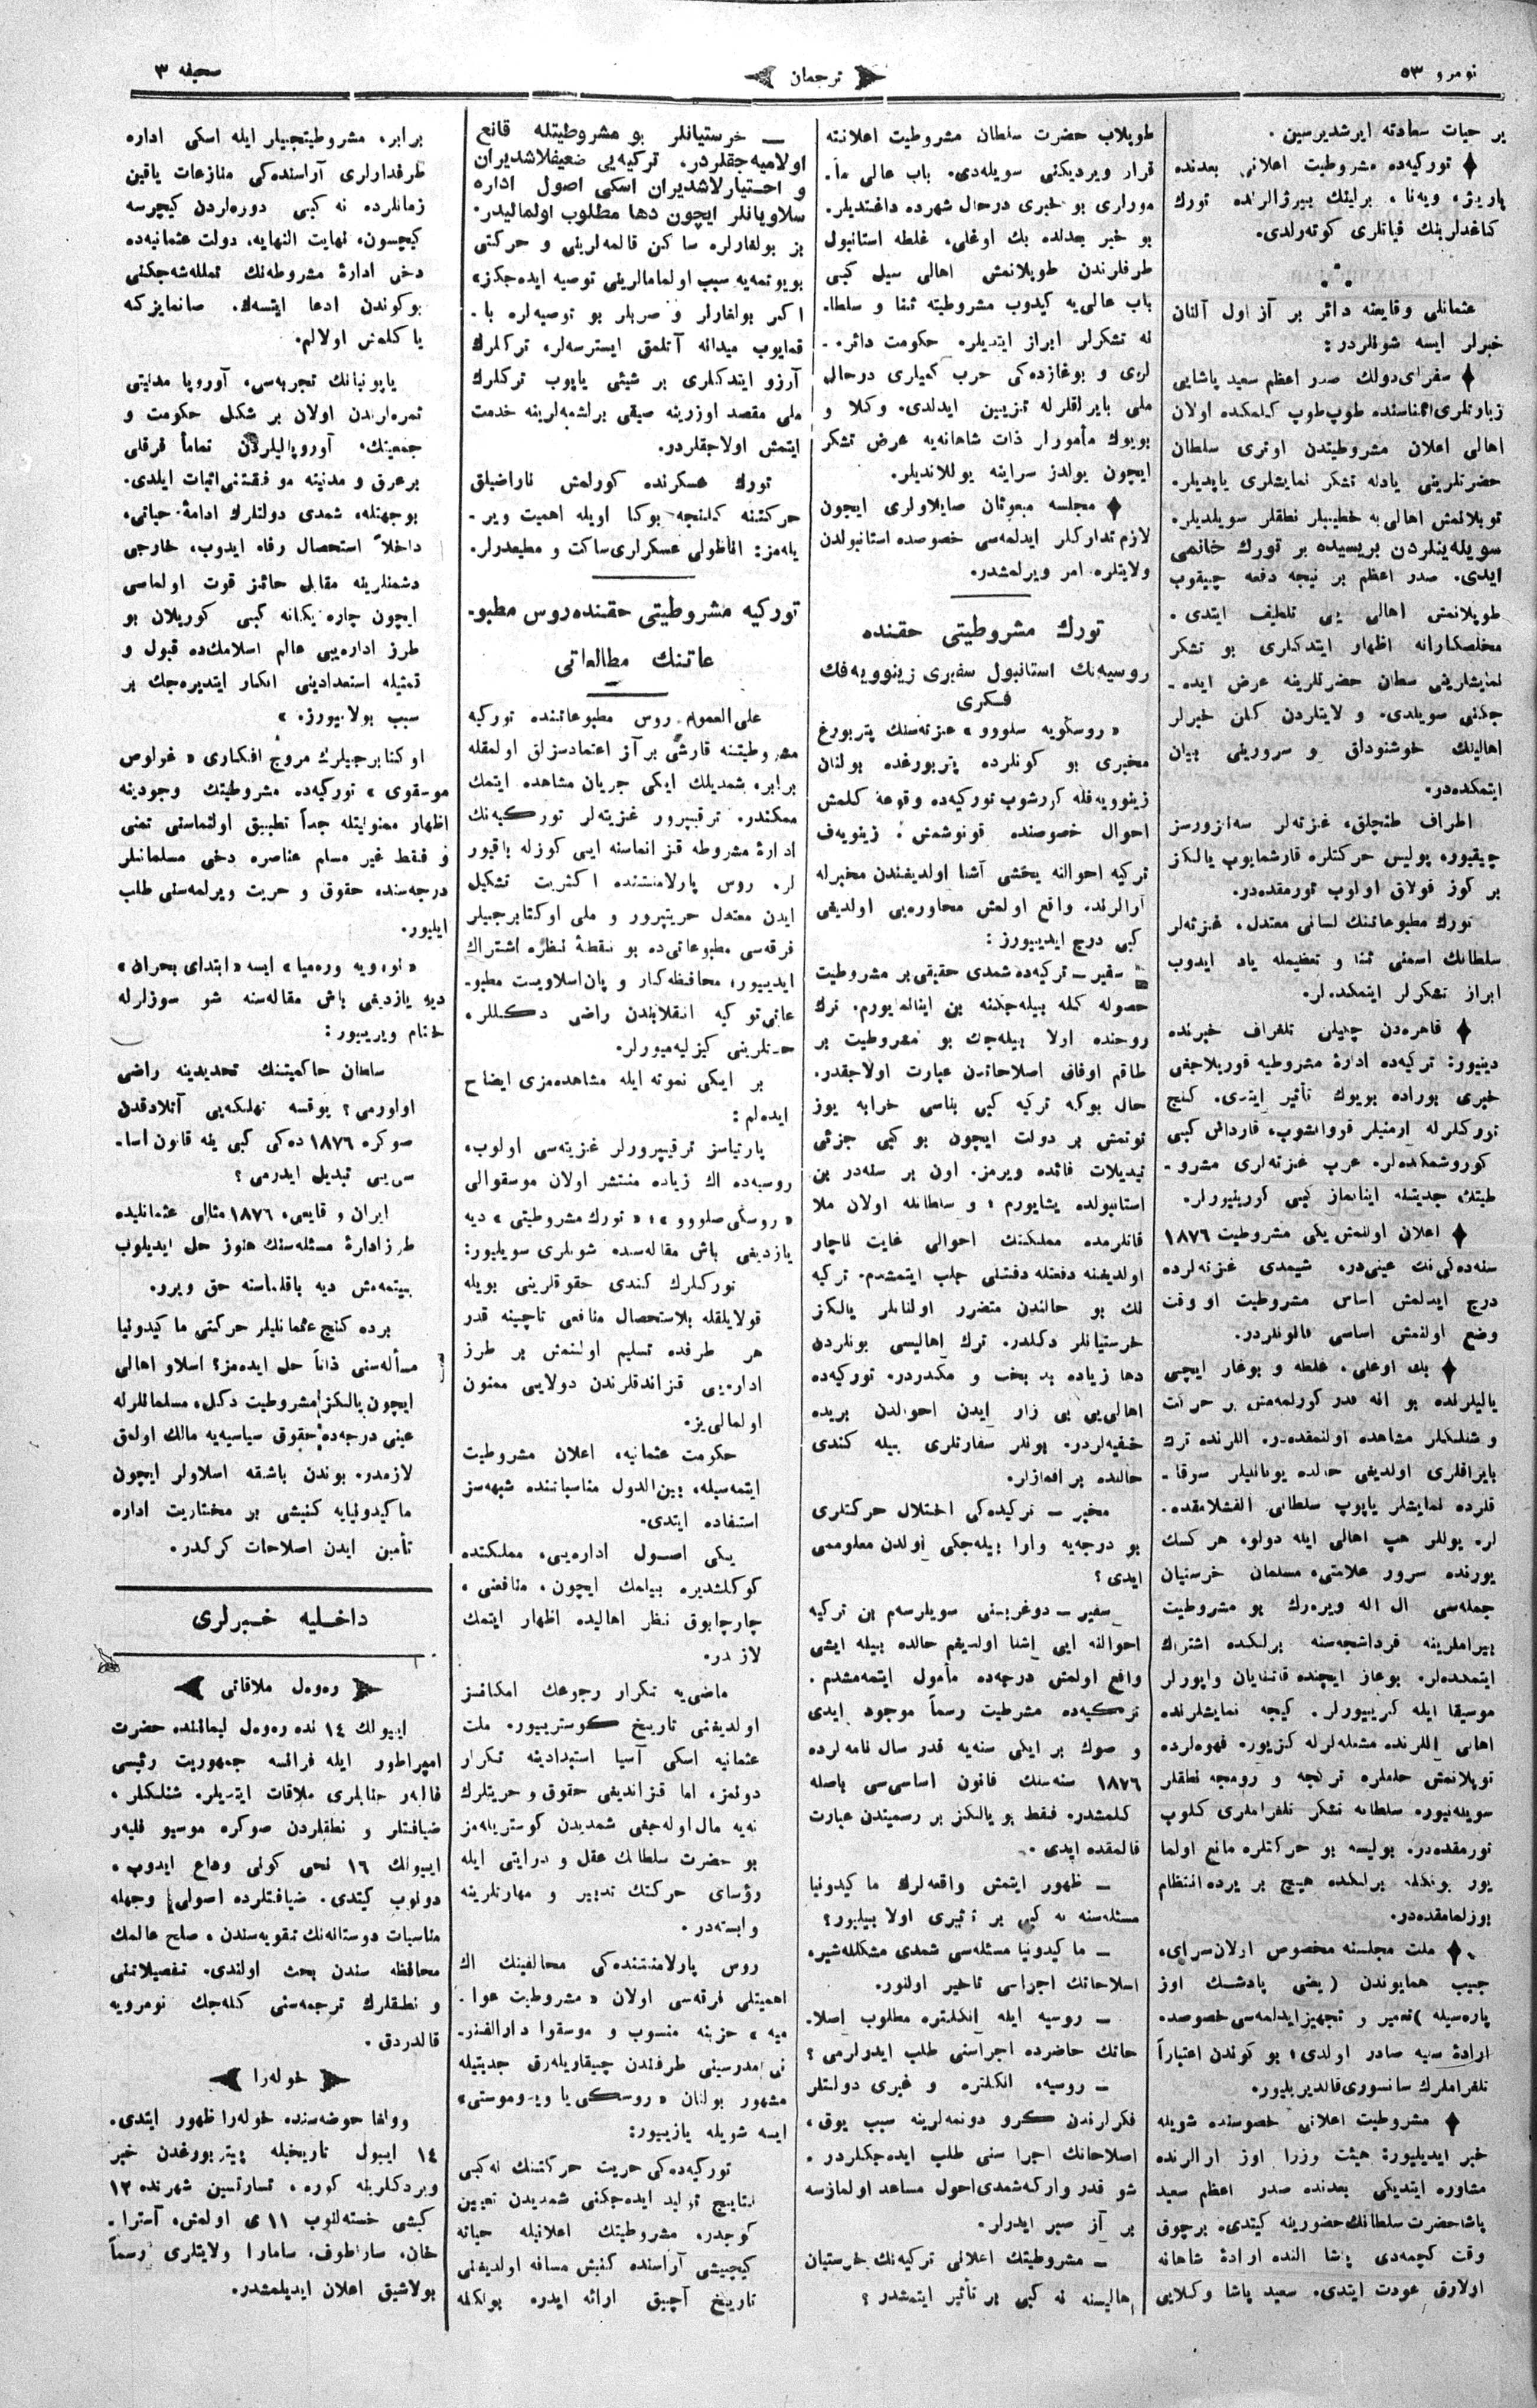 نومرو ٥٣
ترجمان
صحیفه ٣
بر حیات سعادته ایرشدیرسین.
تورکیه‌ده مشروطیت اعلانی بعدنده
پاریژ، ویه‌نا، برلینك بیرژالرنده تورك
کاغدلرینك قیاتلری کوته‌رلدی.
عثمانلی وقایعنه دائر بر آز اول آلنان
خبرلر ایسه شونلردر:
سفرای دولك صدر اعظم سعید پاشایی
زیارتلری اثناسنده طوپ طوپ کلمکده اولان
اهالی اعلان مشروطیتدن اوتری سلطان
حضرتلرینی یادله تشکر نمایشلری یاپدیلر.
توپلانمش اهالی‌یه خطیبلر نطقلر سویلدیلر.
سویله‌ینلردن بریسیده بر تورك خانمی
ایدی. صدر اعظم بر نیچه دفعه چیقوب
طوپلانمش اهالی یی تلطیف ایتدی.
مخلصکارانه اظهار ایتدکلری بو تشکر
نمایشلرینی سلطان حضرتلرینه عرض ایده‌-
جکنی سویلدی. ولایتلردن کلن خبرلر
اهالینك خوشنوداق و سرورینی بیان
ایتمکده‌در.
اطراف طنچلق، غزته‌لر سه‌نزورسز
چیقیور، پولیس حرکتلره قارشمایوب یالکز
بر کوز قولاق اولوب تورمقده‌در.
تورك مطبوعاتنك لسانی معتدل. غزته‌لر
سلطانك اسمنی ثنا و تعظیمله یاد ایدوب
ابراز تشکرلر ایتمکده‌لر.
قاهره‌دن چکیلن تلغراف خبرنده
دینیور: ترکیه‌ده ادارۀ مشروطیه قوریلاجغی
خبری بوراده بویوك تأثیر ایتدی. کنج
تورکلرله ارمنیلر قرواشوب، قارداش کبی
کوروشمکده‌لر. عرب غزته‌لری مشرو-
طیتك جدیتنه اینانماز کبی کورینیورلر.
اعلان اولنمش یکی مشروطیت ١٨٧٦
سنه‌ده‌کی نك عینی‌در. شیمدی غزته‌لرده
درج ایدلمش اساس مشروطیت او وقت
وضع اولنمش اساسی قانونلردر.
بك اوغلی، غلطه و بوغاز ایچی
یالیلرنده بو آنه قدر کورلمه‌مش بر حرکت
و شنلکلر مشاهده اولنمقده‌در. اللرنده ترك
بایراقلری اولدیغی حالده یونانلیلر سوقا-
قلرده نمایشلر یاپوب سلطانی آلقشلامقده‌-
لر. یوللر هپ اهالی ایله دولو، هر کسك
یورنده سرور علامتی، مسلمان خرستیان
جمله‌سی ال اله ویره‌رك بو مشروطیت
بیراملرینه قرداشجه‌سنه برلکده اشتراك
ایتمکده‌لر. بوغاز ایچنده قاتنایان واپورلر
موسیقا ایله کزییورلر. کیجه نمایشلرنده
اهالی اللرنده مشعله‌لرله کزیور. قهوه‌لرده
توپلانمش خلقلره ترکجه و رومجه نطقلر
سویله‌نیور، سلطانه تشکر تلغرافلری کلوب
تورمقده‌در. پولیسه بو حرکتلره مانع اولما
یور بونکله برلکده هیچ بر یرده انتظام
بوزلمامقده‌در.
ملت مجلسنه مخصوص اولان سرای،
جیب همایوندن (یعنی پادشهك اوز
پاره‌سیله) تعمیر و تجهیز ایدلمه‌سی خصوصده
ارادۀ سنیه صادر اولدی؛ بو کوندن اعتباراً
تلغرافلرك سانسوری قالدیریلیور.
مشروطیت اعلانی خصوسنده شویله
خبر ایدیلیور: هیئت وزرا اوز ارالرنده
مشاوره ایتدیکی بعدنده صدر اعظم سعید
پاشا حضرت سلطانك حضورینه کیتدی. برچوق
وقت کچمه‌دی پاشا النده ارادۀ شاهانه
اولارق عودت ایتدی. سعید پاشا وکلایی
طوپلاب حضرت سلطان مشروطیت اعلانته
قرار ویردیکنی سویله‌دی. باب عالی مأ-
مورلری بو خبری درحال شهرده داغتدیلر.
بو خبر بعدنده بك اوغلی، غلطه استانبول
طرفلرندن طوپلانمش اهالی سیل کبی
باب عالی‌یه کیدوب مشروطیته ثنا و سلطا-
نه تشکرلر ابراز ایتدیلر. حکومت دائره‌-
لری و بوغازده‌کی حرب کمیلری درحال
ملی بایراقلرله تزیین ایدلدی. وکلا و
بویوك مأمورلر ذات شاهانه‌یه عرض تشکر
ایچون یولدز سراینه یوللاندیلر.
مجلسه مبعوثان صایلاولری ایچون
لازم تدارکلر ایدلمه‌سی خصوصده استانبولدن
ولایتلره امر ویرلمشدر.
تورك مشروطیتی حقنده
روسیه‌نك استانبول سفیری زینوویه‌فك
فکری
«روسکویه سلووو» غزته‌سنك پتربورغ
مخبری بو کونلرده پتربورغده بولنان
زینوویه‌فله کوروشوب تورکیه‌ده وقوعه کلمش
احوال خصوصنده قونوشمش؛ زینویه‌ف
ترکیه احوالنه یخشی آشنا اولدیغندن مخبرله
آرالرنده واقع اولمش محاوره‌یی اولدیغی
کبی درج ایدییورز:
سفیر — ترکیه‌ده شمدی حقیقی بر مشروطیت
حصوله کله بیله‌جکنه بن اینانمیورم. ترك
روحنده اولا بیله‌جك بو مشروطیت بر
طاقم اوفاق اصلاحاتدن عبارت اولاجقدر.
حال بوکه ترکیه کبی بناسی خرابه یوز
توتمش بر دولت ایچون بو کبی جزئی
تبدیلات فائده ویرمز. اون بر سنه‌در بن
استانبولده یشایورم؛ و سلطانله اولان ملا
قاتلرمده مملکتنك احوالی غایت ناچار
اولدیغنه دفعتله دقتنی جلب ایتمشدم. ترکیه
نك بو حالندن متضرر اولنانلر یالکز
خرستیانلر دکلدر. ترك اهالیسی بونلردن
دها زیاده بد بخت و مکدردر. تورکیه‌ده
اهالی‌یی بی زار ایدن احوالدن بریده
خفیه‌لردر. بونلر سفارتلری بیله کندی
حالنده براقمازلر.
مخبر — ترکیده‌کی اختلال حرکتلری
بو درجه‌یه وارا بیله‌جکی اولدن معلوممی
ایدی؟
سفیر — دوغریسنی سویلرسه‌م بن ترکیه
احوالنه ایی آشنا اولدیغم حالده بیله ایشی
واقع اولمش درجه‌ده مأمول ایتمه‌مشدم.
ترکیه‌ده مشرطیت رسماً موجود ایدی
و صوك بر ایکی سنه‌یه قدر سال نامه لرده
١٨٧٦ سنه‌سنك قانون اساسی‌سی باصله
کلمشدر. فقط بو یالکز بر رسمیتدن عبارت
قالمقده ایدی.
— ظهور ایتمش واقعه‌لرك ماکیدونیا
مسئله‌سنه نه کبی بر تأثیری اولا بیلیور؟
— ماکیدونیا مسئله‌سی شمدی مشکلله‌شیر،
اسلاحاتك اجراسی تأخیر اولنور.
— روسیه ایله انکلتره مطلوب اصلا-
حاتك حاضرده اجراسنی طلب ایدولرمی؟
— روسیه، انکلتره و غیری دولتلر
فکرلرندن کرو دونمه‌لرینه سبب یوق،
اصلاحاتك اجراسنی طلب ایده‌جکلردر.
شو قدر وارکه شمدی احول مساعد اولمازسه
بر آز صبر ایدرلر.
— مشروطیتك اعلانی ترکیه‌نك خرستیان
اهالیسنه نه کبی بر تأثیر ایتمشدر؟
— خرستیانلر بو مشروطیتله قانع
اولامیه‌جقلردر. ترکیه‌یی ضعیفلاشدیران
و احتیارلاشدیران اسکی اصول اداره
سلاویانلر ایچون دها مطلوب اولمالیدر.
بز بولغارلره ساکن قالمه‌لرینی و حرکتی
بویوتمه‌یه سبب اولمامالرینی توصیه ایده‌جکز،
اکر بولغارلر و صربلر بو توصیه‌لره با-
قمایوب میدانه آتلمق ایسترسه‌لر، ترکلرك
آرزو ایتدکلری بر شیئی یاپوب ترکلرك
ملی مقصد اوزرینه صیقی برلشمه‌لرینه خدمت
ایتمش اولاجقلردر.
تورك عسکرنده کورلمش ناراضیلق
حرکتنه کلنجه بوکا اویله اهمیت ویر-
یله‌مز: اناطولی عسکرلری ساکت و مطیعدرلر.
تورکیه مشروطیتی حقنده روس مطبو-
عاتنك مطالعاتی
علی العموم روس مطبوعاتنده تورکیه
مشروطیتنه قارشی بر آز اعتمادسزلق اولمقله
برابر، شمدیلك ایکی جریان مشاهده ایتمك
ممکندر. ترقیپرور غزیته‌لر تورکیه‌نك
ادارۀ مشروطه قزانماسنه ایی کوزله باقیور
لر. روس پارلامنتنده اکثریت تشکیل
ایدن معتدل حریتپرور و ملی اوکتابرجیلر
فرقه‌سی مطبوعاتی‌ده بو نقطۀ نظره اشتراك
ایدییور؛ محافظه‌کار و پان‌اسلاویست مطبو-
عاتی تورکیه انقلابندن راضی دکللر،
حسلرینی کیزلیه‌میورلر.
بر ایکی نمونه ایله مشاهده‌مزی ایضاح
ایده‌لم:
پارتیاسز ترقیپرورلر غزیته‌سی اولوب،
روسیه‌ده اك زیاده منتشر اولان موسقوالی
«روسکی صلووو»؛ «تورك مشروطیتی» دیه
یازدیغی باش مقاله‌سنده شونلری سویلیور:
تورکلرك کندی حقوقلرینی بویله
قولایلقله بلاستحصال منافعی تاچینه قدر
هر طرفده تسلیم اولنمش بر طرز
اداره‌یی قزاندقلرندن دولایی ممنون
اولمالی‌یز.
حکومت عثمانیه، اعلان مشروطیت
ایتمه‌سیله، بین‌الدول مناسباتنده شبهه‌سز
استفاده ایتدی.
یکی اصول اداره‌یی، مملکتده
کوکلشدیره بیلمك ایچون، منافعنی،
چارچابوق نظر اهالیده اظهار ایتمك
لازمدر.
ماضی‌یه تکرار رجوعك امکانسز
اولدیغنی تاریخ کوسترییور. ملت
عثمانیه اسکی آسیا استبدادینه تکرار
دونمز، اما قزاندیغی حقوق و حریتلرك
نه‌یه مال اوله‌جغی شمدیدن کوستریله‌مز
بو حضرت سلطانك عقل و درایتی ایله
رؤسای حرکتك تدبیر و مهارتلرینه
وابسته‌در.
روس پارلامنتنده‌کی مخالفینك اك
اهمیتلی فرقه‌سی اولان «مشروطیت عوا-
میه» حزبنه منسوب و موسقوا دارالفنو-
نی مدرسینی طرفندن چیقاریله‌رق جدیتیله
مشهور بولنان «روسکی‌یا ویدوموستی»
ایسه شویله یازییور:
تورکیه‌ده‌کی حریت حرکتنك نه‌کبی
نتایج تولید ایده‌جکنی شمدیدن تعیین
کوجدر. مشروطیتك اعلانیله حیاته
کیچیشی آراسنده کنیش مسافه اولدیغنی
تاریخ آچیق ارائه ایدر. بونکله
برابر، مشروطیتجیلر ایله اسکی اداره
طرفدارلری آراسنده‌کی منازعات یاقین
زمانلرده نه کبی دوره‌لردن کیچرسه
کیچسون، نهایت النهایه، دولت عثمانیه‌ده
دخی ادارۀ مشروطه‌نك تمللشه‌جکنی
بوکوندن ادعا ایتسه‌ك. صانمایزکه
یاکلمش اولالم.
یاپونیانك تجربه‌سی، آوروپا مدنیتی
ثمره‌لرندن اولان بر شکل حکومت و
جمعیتك، آوروپالیلردن تماماً فرقلی
برعرق و مدنیته موفقتنی اثبات ایلدی.
بوجهتله، شمدی دولتلرك ادامۀ حیاتی،
داخلاً استحصال رفاه ایدوب، خارجی
دشمنلرینه مقابل حائز قوت اولماسی
ایچون چاره یکانه کبی کوریلان بو
طرز اداره‌یی عالم اسلامك‌ده قبول و
تمثیله استعدادینی انکار ایتدیره‌جك بر
سبب بولامیورز.»
اوکتابرجیلرك مروج افکاری «غولوس
موسقوی» تورکیه‌ده مشروطیتك وجودینه
اظهار ممنونیتله جداً تطبیق اولنماسنی تمنی
و فقط غیر مسلم عناصره دخی مسلمانلر
درجه‌سنده حقوق و حریت ویرلمه‌سنی طلب
ایلیور.
«نوه‌ویه وره‌میا» ایسه «ابتدای بحران»
دیه یازدیغی باش مقاله‌سنه شو سوزلرله
ختام ویرییور:
سلطان حاکمیتنك تحدیدینه راضی
اولورمی؟ یوقسه تهلکه‌یی آتلادقدن
صوکره ١٨٧٦ ده‌کی کبی ینه قانون اسا-
سی‌یی تبدیل ایدرمی؟
ایران وقایعی، ١٨٧٦ مثالی عثمانلیده
طرز ادارۀ مسئله‌سنك هنوز حل ایدیلوب
بیتمه‌مش دیه باقلماسنه حق ویرر.
برده کنج عثمانلیلر حرکتی ماکیدونیا
مسأله‌سنی ذاتاً حل ایده‌مز؟ اسلاو اهالی
ایچون یالکز مشروطیت دکل، مسلمانلرله
عینی درجه‌ده حقوق سیاسیه‌یه مالك اولمق
لازمدر. بوندن باشقه اسلاولر ایچون
ماکیدونیایه کنیشی بر مختاریت اداره
تأمین ایدن اصلاحات کرکدر.
داخلیه خبرلری
ره‌وه‌ل ملاقاتی
اییولك ١٤ نده ره‌وه‌ل لیماننده حضرت
امپراطور ایله فرانسه جمهوریت رئیسی
فالیه‌ر جنابلری ملاقات ایتدیلر. شنلکلر،
ضیافتلر و نطقلردن صوکره موسیو فلیه‌ر
ایییولك ١٦ نجی کونی وداع ایدوب،
دونوب کیتدی. ضیافتلرده اصولی وجهله
مناسبات دوستانه‌نك تقویه‌سندن، صلح عالمك
محافظه سندن بحث اولندی. تفصیلاتنی
و نطقلرك ترجمه‌سنی کله‌جك نومرویه
قالدردق.
خوله‌را
وولغا حوضه‌سنده خوله‌را ظهور ایتدی.
١٤ ایبول تاریخیله پیتربوورغدن خبر
ویردکلرینه کوره، تسارتسین شهرنده ١٢
کیشی خسته‌لنوب ١١ی اولمش. آسترا-
خان، ساراطوف، سامارا ولایتلری رسماً
بولاشیق اعلان ایدیلمشدر.